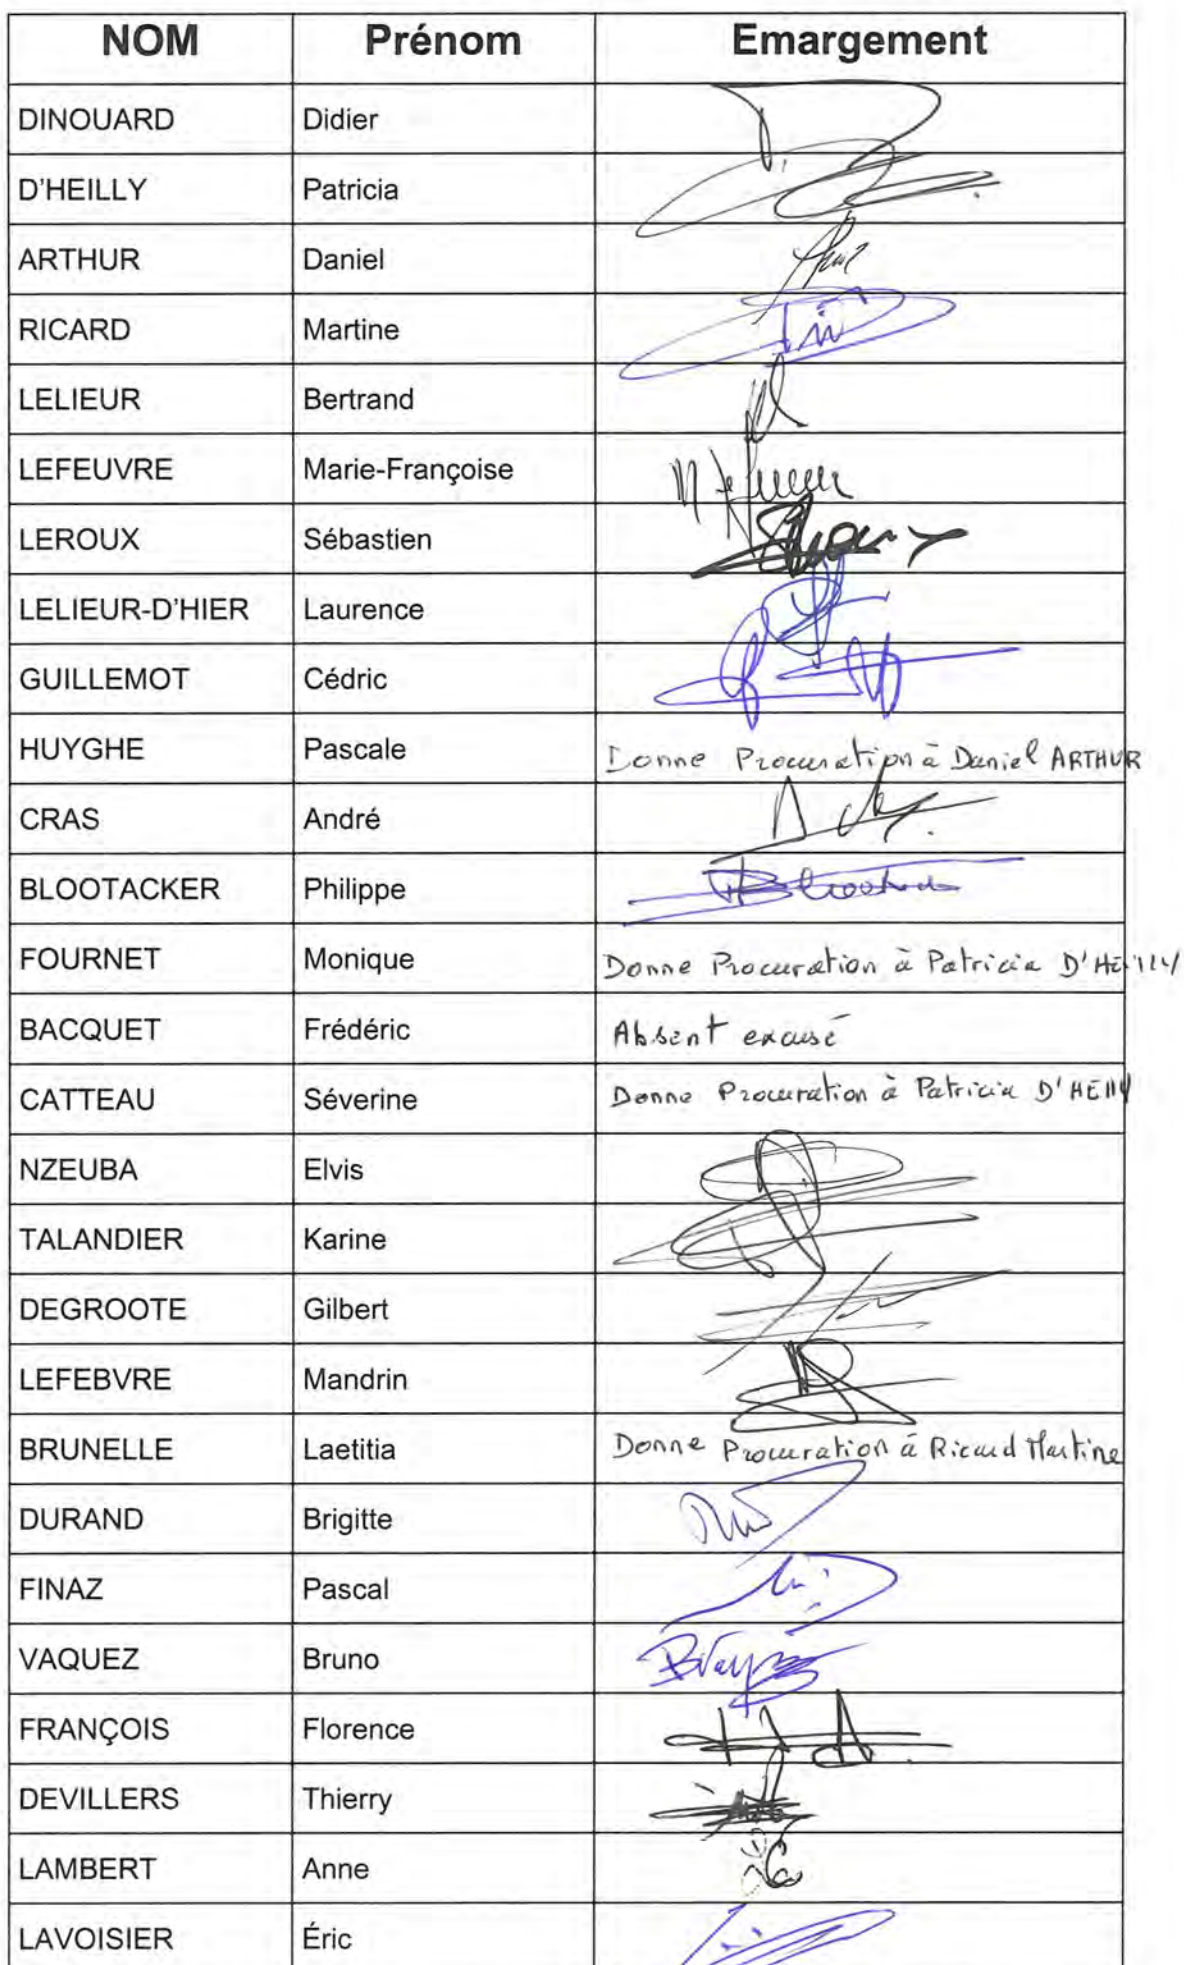 NOM Prénom Emargement
DINOUARD Didier
D'HEILLY Patricia
ARTHUR Daniel
RICARD Martine
LELIEUR Bertrand
LEFEUVRE Marie-Françoise
LEROUX Sébastien
LELIEUR-D'HIER Laurence
GUILLEMOT Cédric
HUYGHE Pascale Donne Procuration à Daniel ARTHUR
CRAS André
BLOOTACKER Philippe
FOURNET Monique Donne Procuration à Patricia D'HEILLY
BACQUET Frédéric Absent excusé
CATTEAU Séverine Donne Procuration à Patricia D'HEILLY
NZEUBA Elvis
TALANDIER Karine
DEGROOTE Gilbert
LEFEBVRE Mandrin
BRUNELLE Laetitia Donne Procuration à Ricard Martine
DURAND Brigitte
FINAZ Pascal
VAQUEZ Bruno
FRANÇOIS Florence
DEVILLERS Thierry
LAMBERT Anne
LAVOISIER Éric